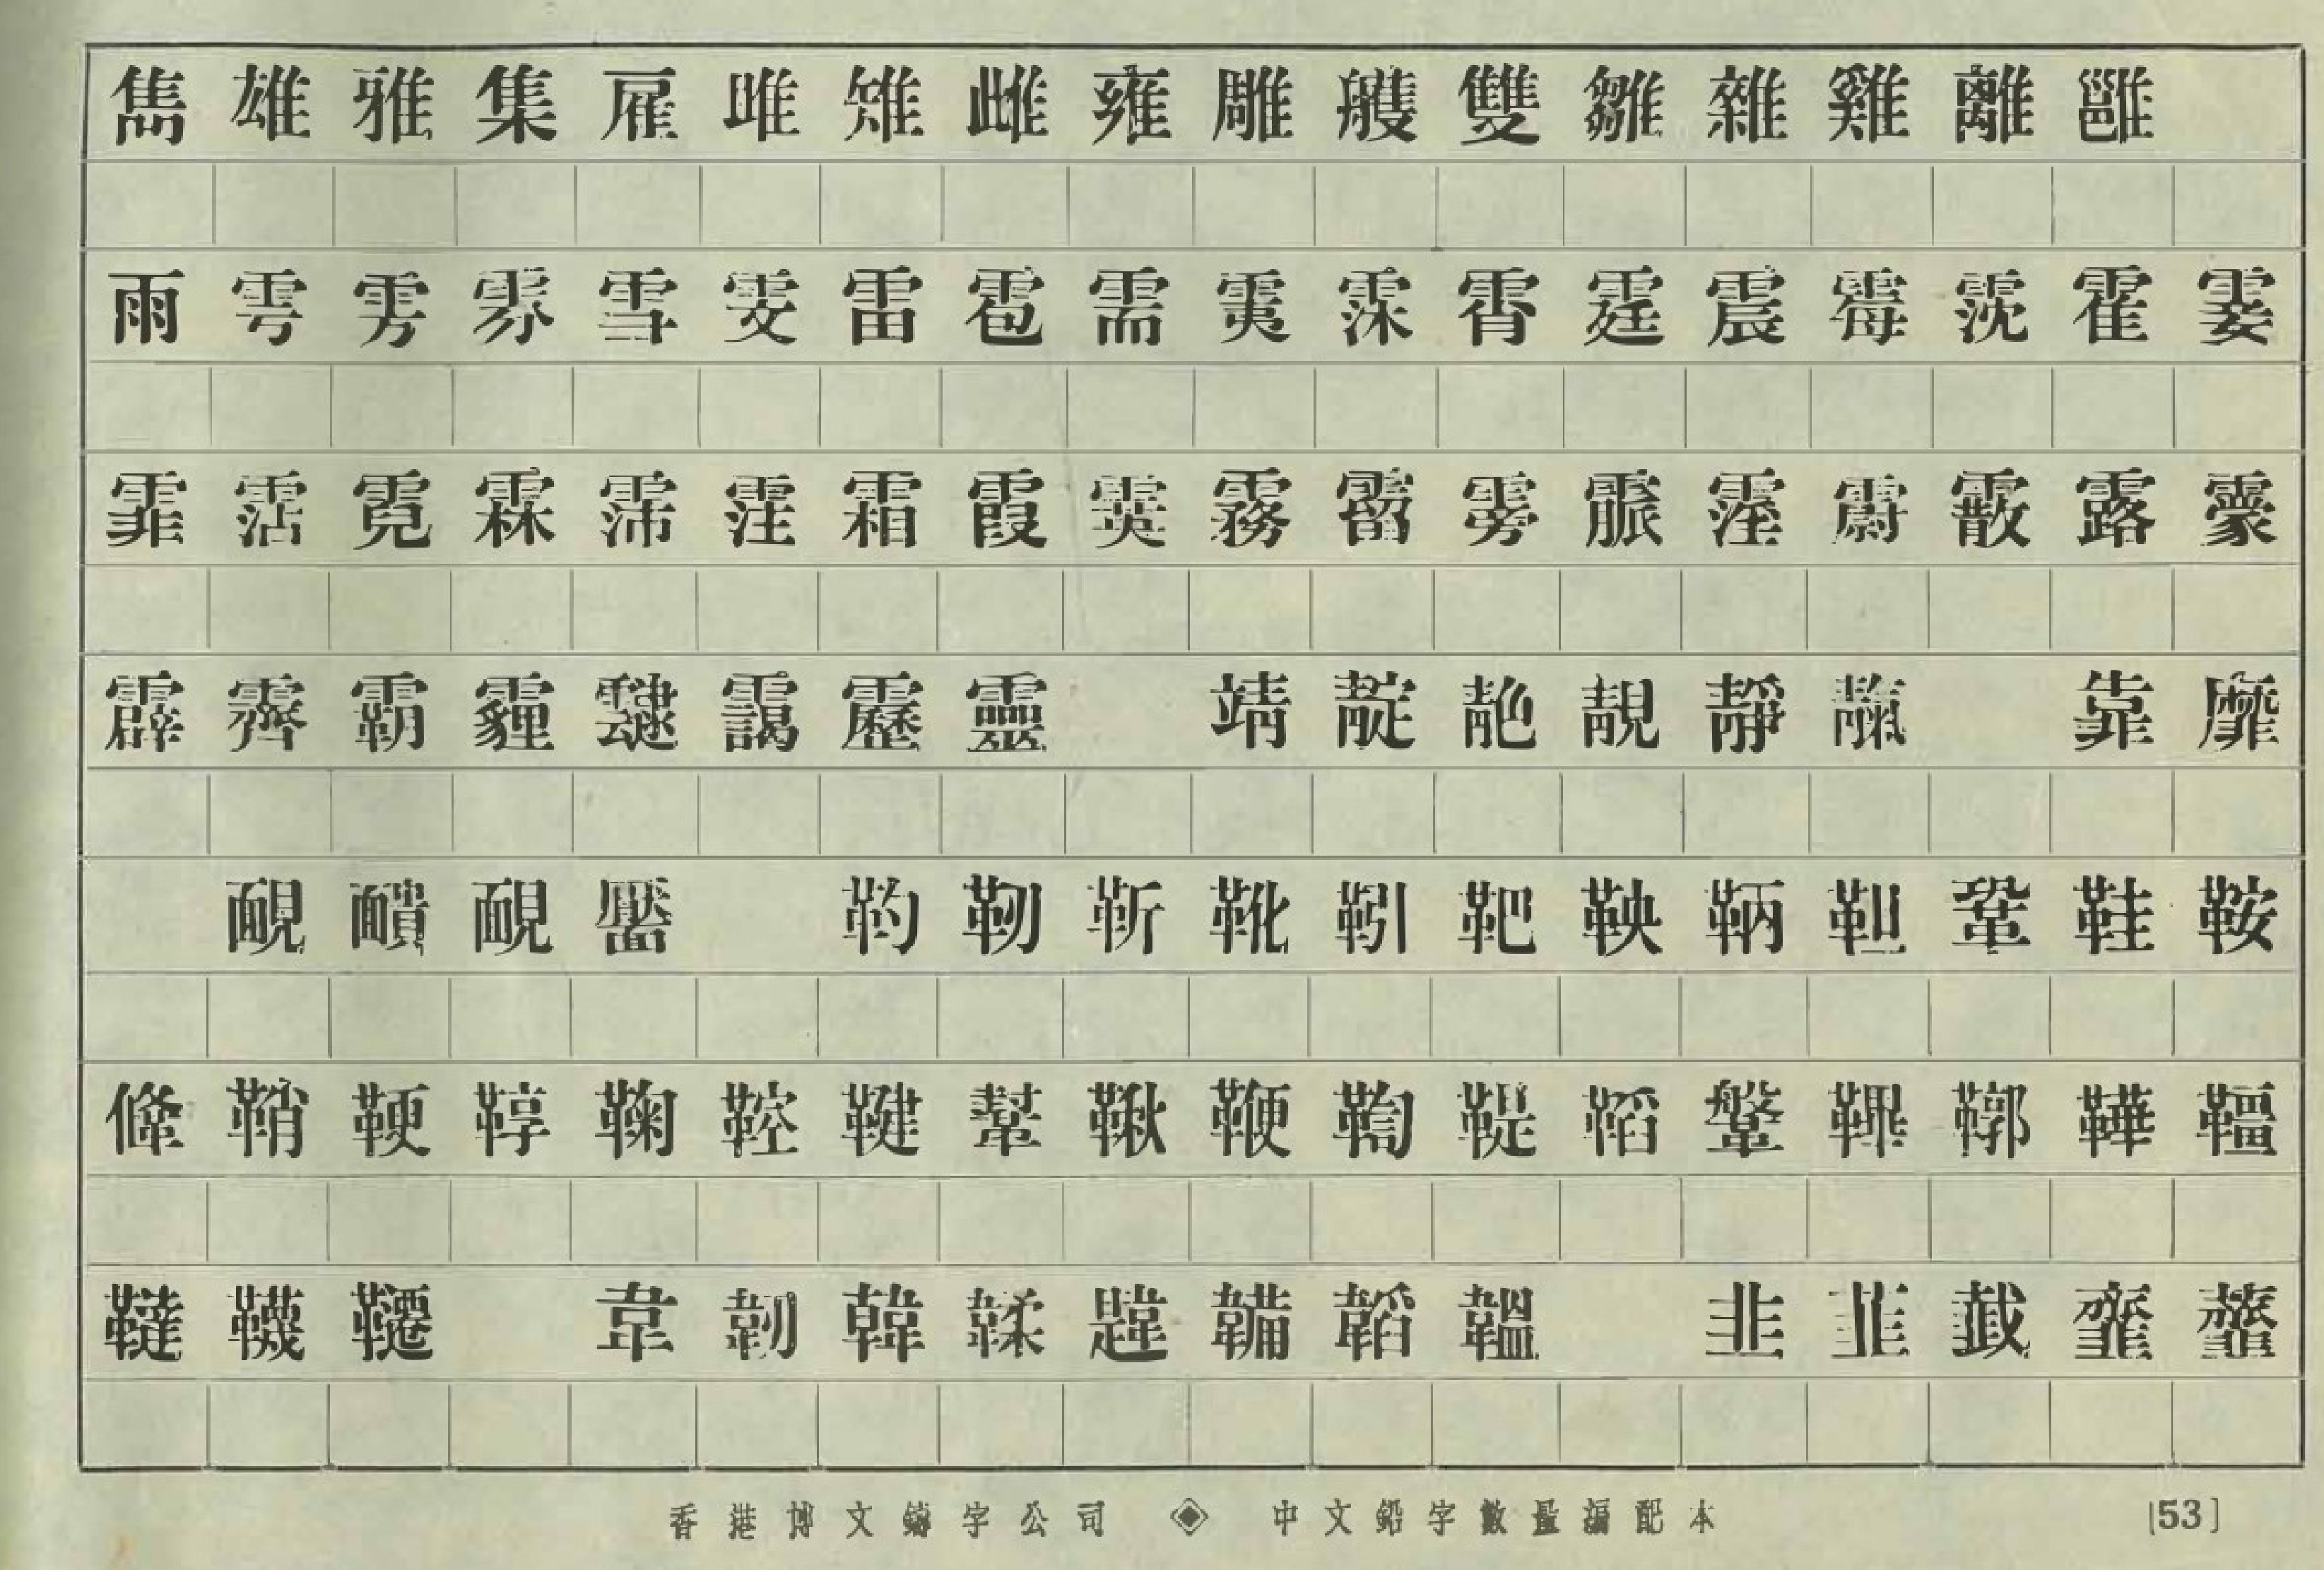 雋 雄 雅 集 雇 雎 雉 雌 雍 雕 雘 雙 雛 雜 雞 離 雝
雨 雩 雱 雰 雪 雯 雷 雹 需 霙 霂 霄 霆 震 霉 霃 霍 霎
霏 霑 霓 霖 霈 霪 霜 霞 霙 霧 霤 霶 霢 霪 霨 霰 露 霥
霹 霽 霸 霾 靆 靄 靂 靈 靖 靛 靘 靚 靜 靝 靠 靡
靦 靧 靦 靨 靮 靭 靳 靴 靷 靶 鞅 鞆 靼 鞏 鞋 鞍
鞗 鞘 鞕 鞟 鞠 鞚 鞬 鞤 鞦 鞭 鞫 鞮 鞱 鞶 鞸 鞹 鞾 韁
韃 韈 韆 韋 韌 韓 韖 韙 韛 韜 韞 韭 韮 韱 齏 虀
香港博文鑄字公司 ◈ 中文鉛字數量編配本 [53]